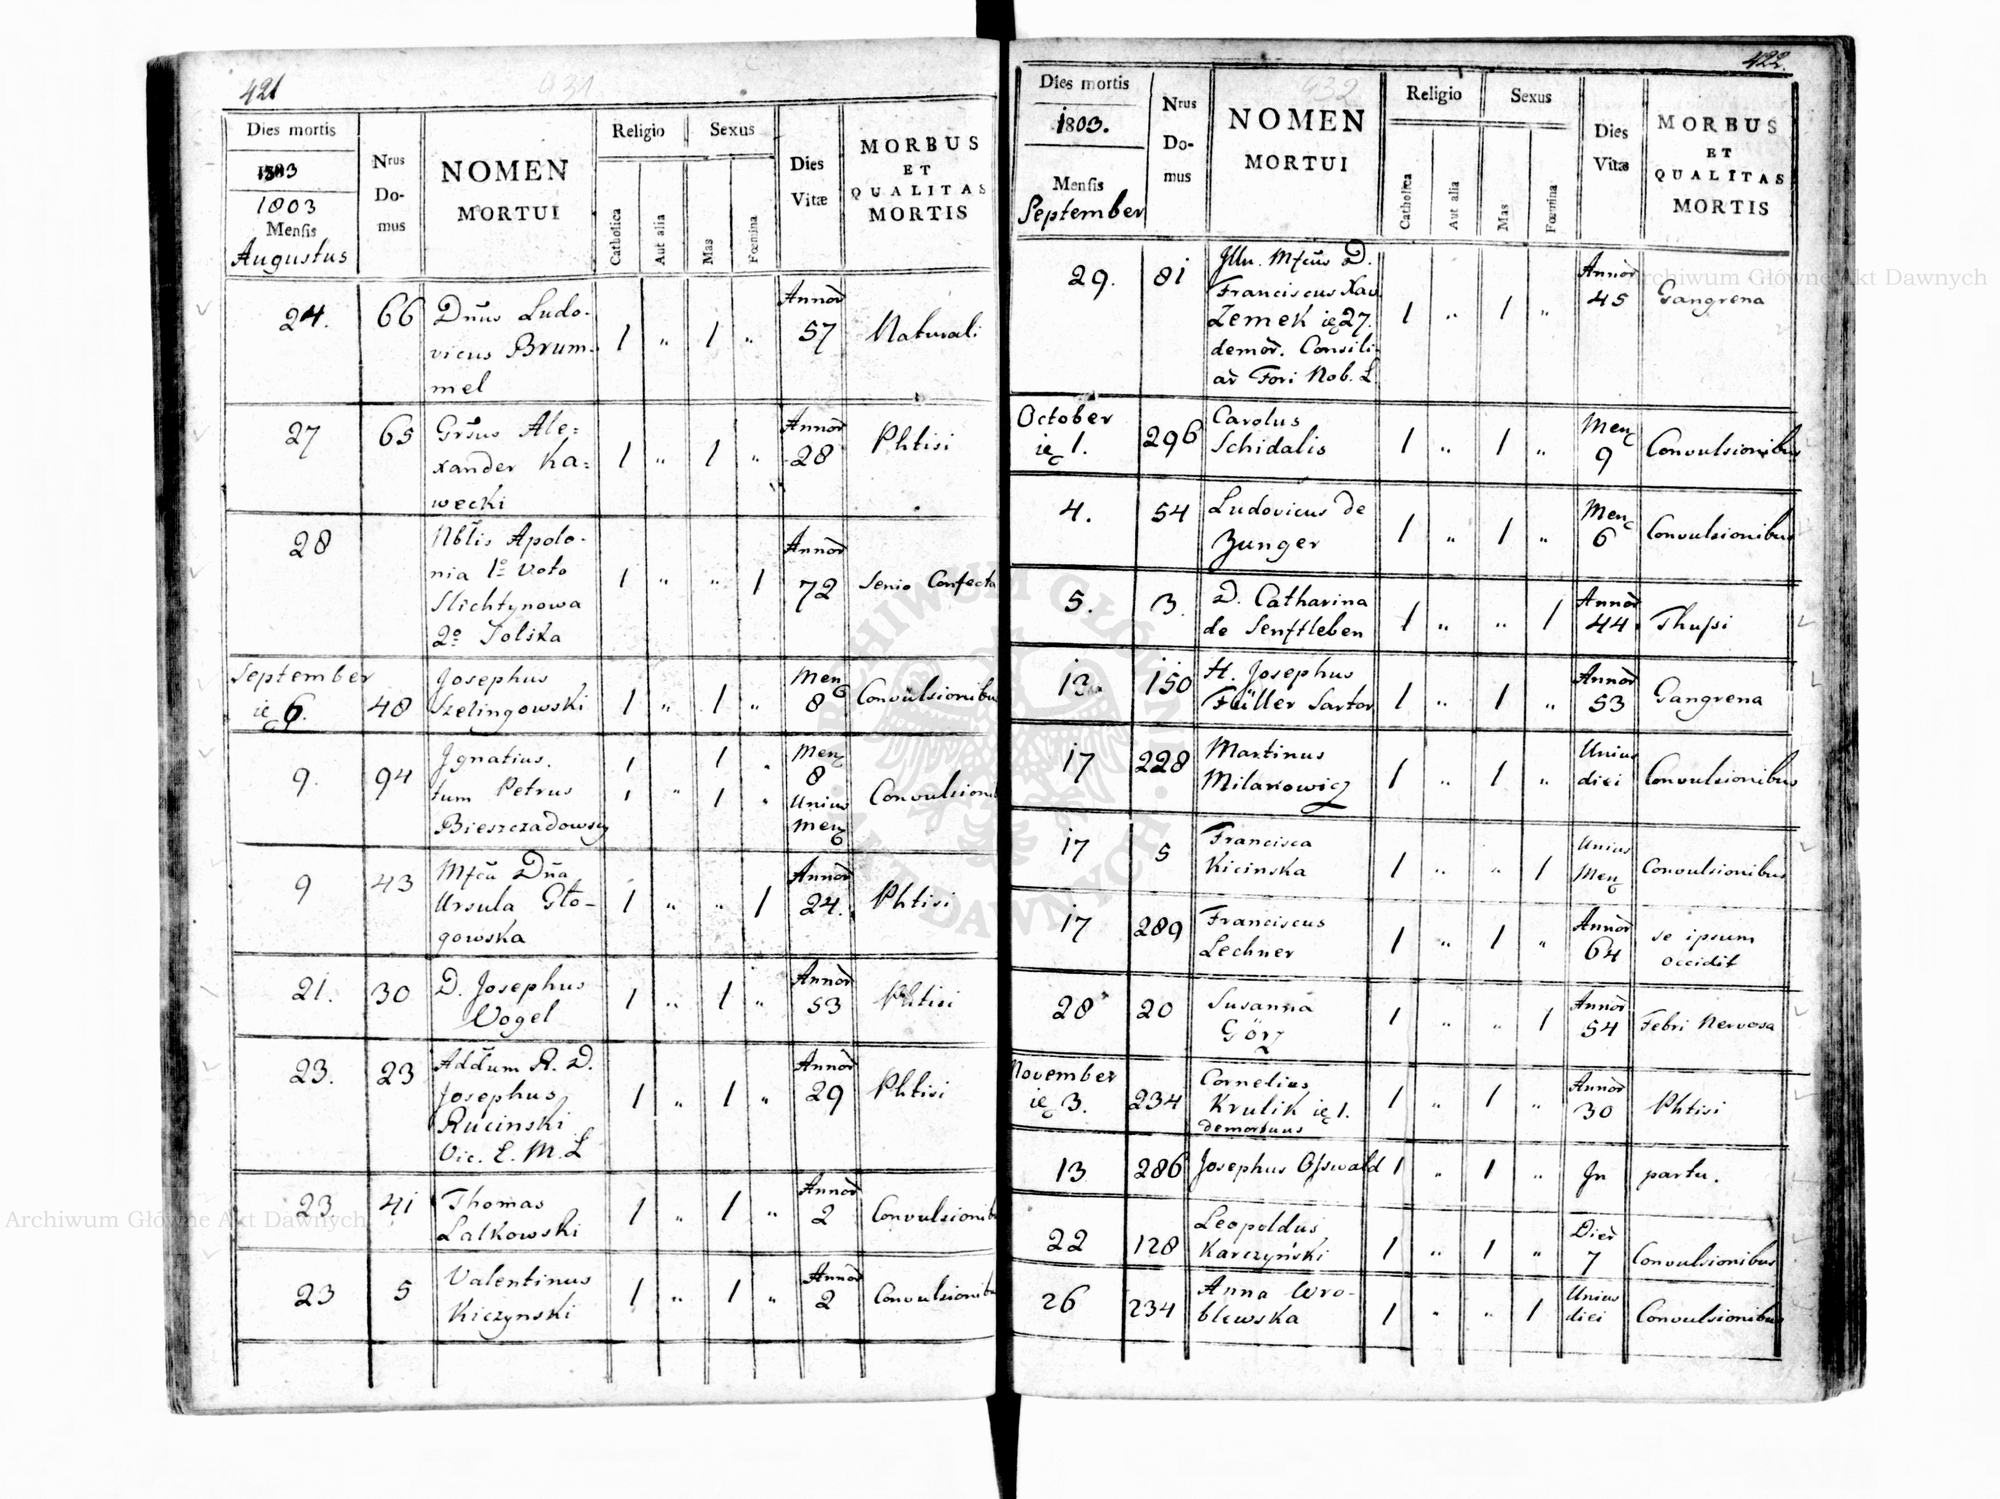 421
931
Dies mortis
1803
1803
Mensis
Augustus
Nrus
Do-
mus
NOMEN
MORTUI
Religio
Catholica
Aut alia
Sexus
Mas
Fœmina
Dies
Vitæ
MORBUS
ET
QUALITAS
MORTIS
24. 66 Dnus Ludo-
vicus Brum-
mel
1 " 1 " Annor
57 Naturali
27 65 Grsus Ale=
xander Ka=
wecki
1 " 1 " Annor
28 Phtisi
28 Nblis Apolo-
nia 1º voto
Slichtynowa
2º Solska
1 " " 1 Annor
72 Senio Confecta
September
6. 48 Josephus
Szelingowski
1 " 1 " Men
8 Convulsionibus
9. 94 Ignatius.
tum Petrus
Bieszczadowscy
1 1 "
1 " 1 " Men
8
Unius
Men
Convulsioni
9 43 Mfca Dna
Ursula Gło-
gowska
1 " " 1 Annor
24. Phtisi
21. 30 D. Josephus
Vogel
1 " 1 " Annor
53 Phtisi
23. 23 Addum R. D.
Josephus
Rucinski
Vic. E. M. L
1 " 1 " Annor
29 Phtisi
23 41 Thomas
Lalkowski
1 " 1 " Annor
2 Convulsionib
23 5 Valentinus
Kiczynski
1 " 1 " Annor
2 Convulsionib
422.
932
Dies mortis
1803.
Mensis
September
Nrus
Do-
mus
NOMEN
MORTUI
Religio
Catholica
Aut alia
Sexus
Mas
Fœmina
Dies
Vitæ
MORBUS
ET
QUALITAS
MORTIS
29. 81 Illu. Mfcus D.
Franciscus Xav
Zemek ię 27.
demor. Consili-
ar Fori Nob. L
1 " 1 " Annor
45 Gangrena
October
ię 1. 296 Carolus
Schidalis
1 " 1 " Men
9 Convulsionibus
4. 54 Ludovicus de
Zunger
1 " 1 " Men
6 Convulsionibus
5. 3 D. Catharina
de Senftleben
1 " " 1 Annor
44 Thussi
13 150 H. Josephus
Füller Sartor
1 " 1 " Annor
53 Gangrena
17 228 Martinus
Milanowicz
1 " 1 " Unius
diei Convulsionibus
17 5 Francisca
Kicinska
1 " " 1 Unius
Men Convulsionibus
17 289 Franciscus
Lechner
1 " 1 " Annor
64 se ipsum
occidit
28 20 Susanna
Görz
1 " " 1 Annor
54 Febri Nervosa
November
ię 3. 234 Cornelius
Krulik ię 1.
demortuus
1 " 1 " Annor
30 Phtisi
13 286 Josephus Osswald 1 " 1 " In partu.
22 128 Leopoldus
Karczyński
1 " 1 " Dier
7 Convulsionibus
26 234 Anna Wro-
blewska
1 " " 1 Unius
diei Convulsionibus
Archiwum Główne Akt Dawnych
Archiwum Główne Akt Dawnych
ARCHIWUM GŁÓWNE AKT DAWNYCH